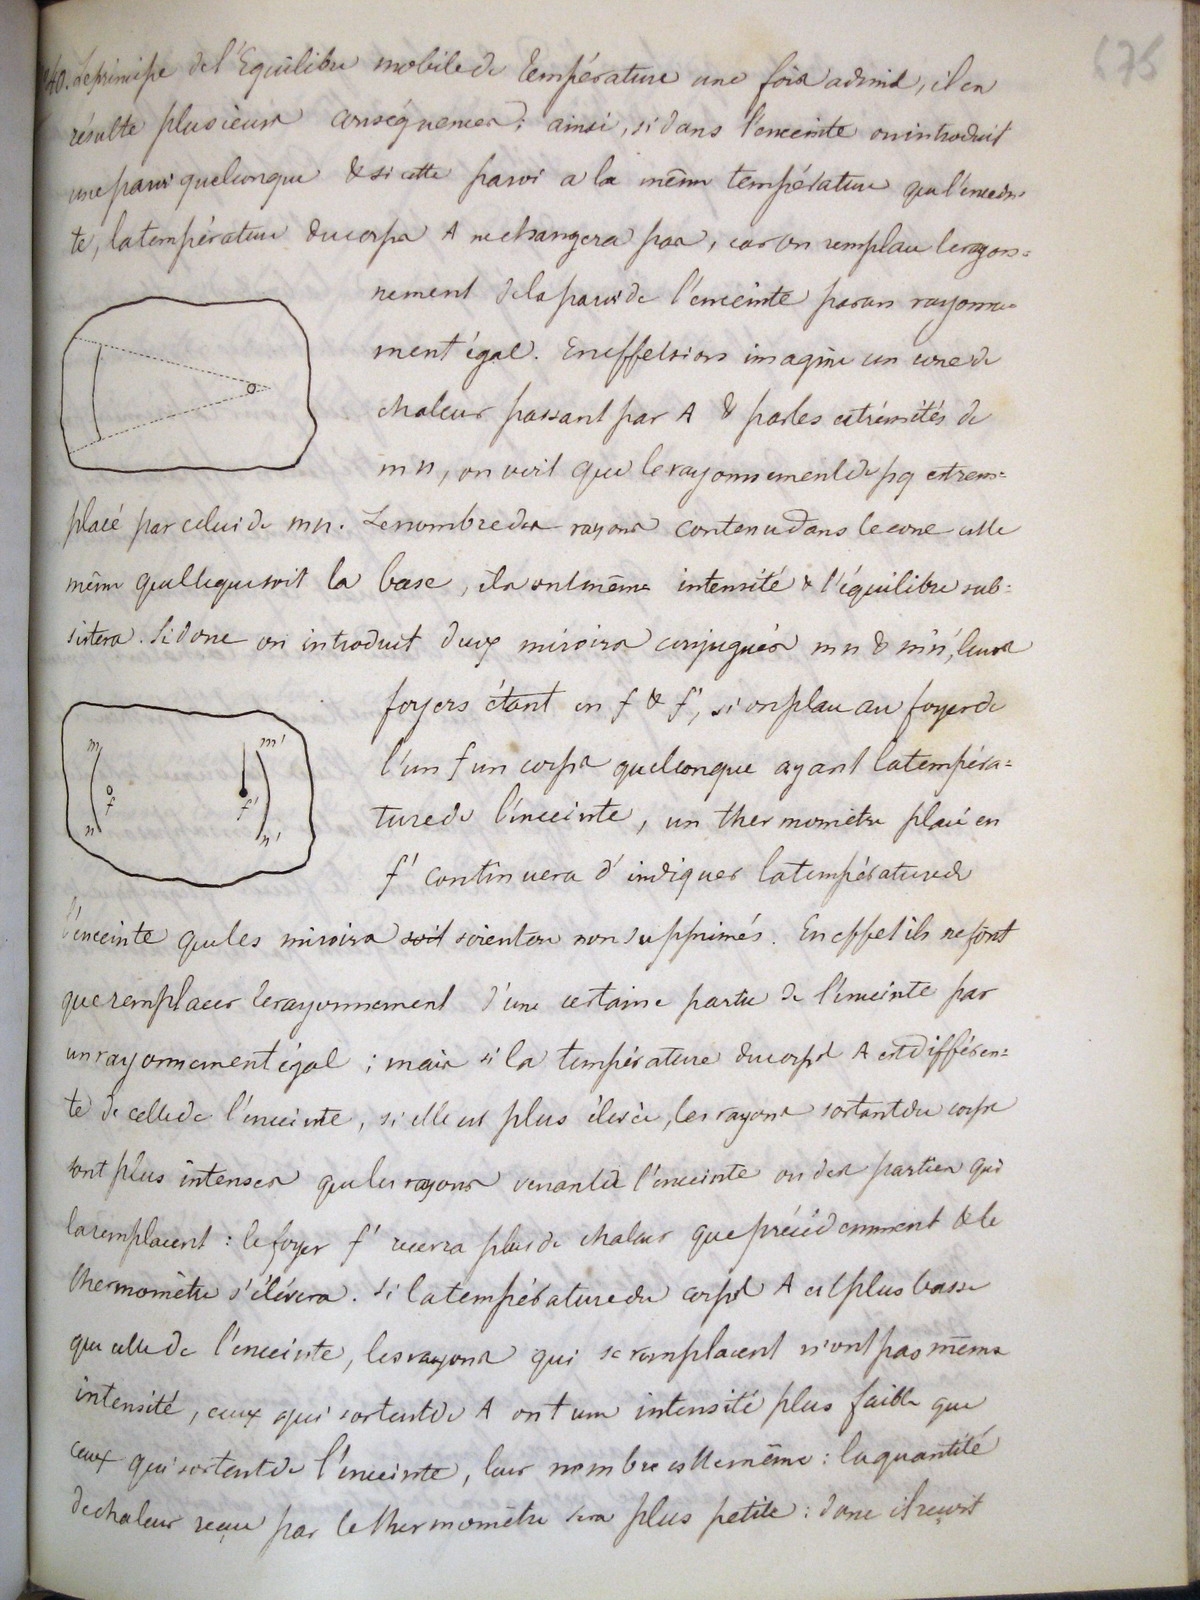 676
40. Le principe de l'Equilibre mobile de Température une fois admis, il en
résulte plusieurs conséquences; ainsi, si dans l'enceinte on introduit
une paroi quelconque & si cette paroi a la même température que l'encein-
te, la température du corps A ne changera pas, car on remplace le rayon=
nement de la paroi de l'enceinte par un rayonne-
ment égal. En effet si on imagine un cone de
chaleur passant par A & par les extrémités de
mn, on voit que le rayonnement de pq est rem=
placé par celui de mn. Le nombre des rayons contenu dans le cone est le
même quelle que soit la base, ils ont même intensité & l'équilibre sub=
sistera. Si donc on introduit deux miroirs conjugués mn & m'n', leurs
foyers étant en f & f', si on place au foyer de
l'un f un corps quelconque ayant la tempéra=
ture de l'enceinte, un thermomètre placé en
f' continuera d'indiquer la température de
l'enceinte que les miroirs soit soient ou non supprimés. En effet ils ne font
que remplacer le rayonnement d'une certaine partie de l'enceinte par
un rayonnement égal; mais si la température du corps A est différen=
te de celle de l'enceinte, si elle est plus élevée, les rayons sortant du corps
sont plus intenses que les rayons venant de l'enceinte ou des parties qui
la remplacent: le foyer f' recevra plus de chaleur que précédemment & le
thermomètre s'élévera. Si la température du corps A est plus basse
que celle de l'enceinte, les rayons qui se remplacent n'ont pas même
intensité, ceux qui sortent de A ont une intensité plus faible que
ceux qui sortent de l'enceinte, leur nombre est le même: la quantité
de chaleur reçue par le thermomètre sera plus petite: donc il reçoit
m
n
f
m'
f'
n'